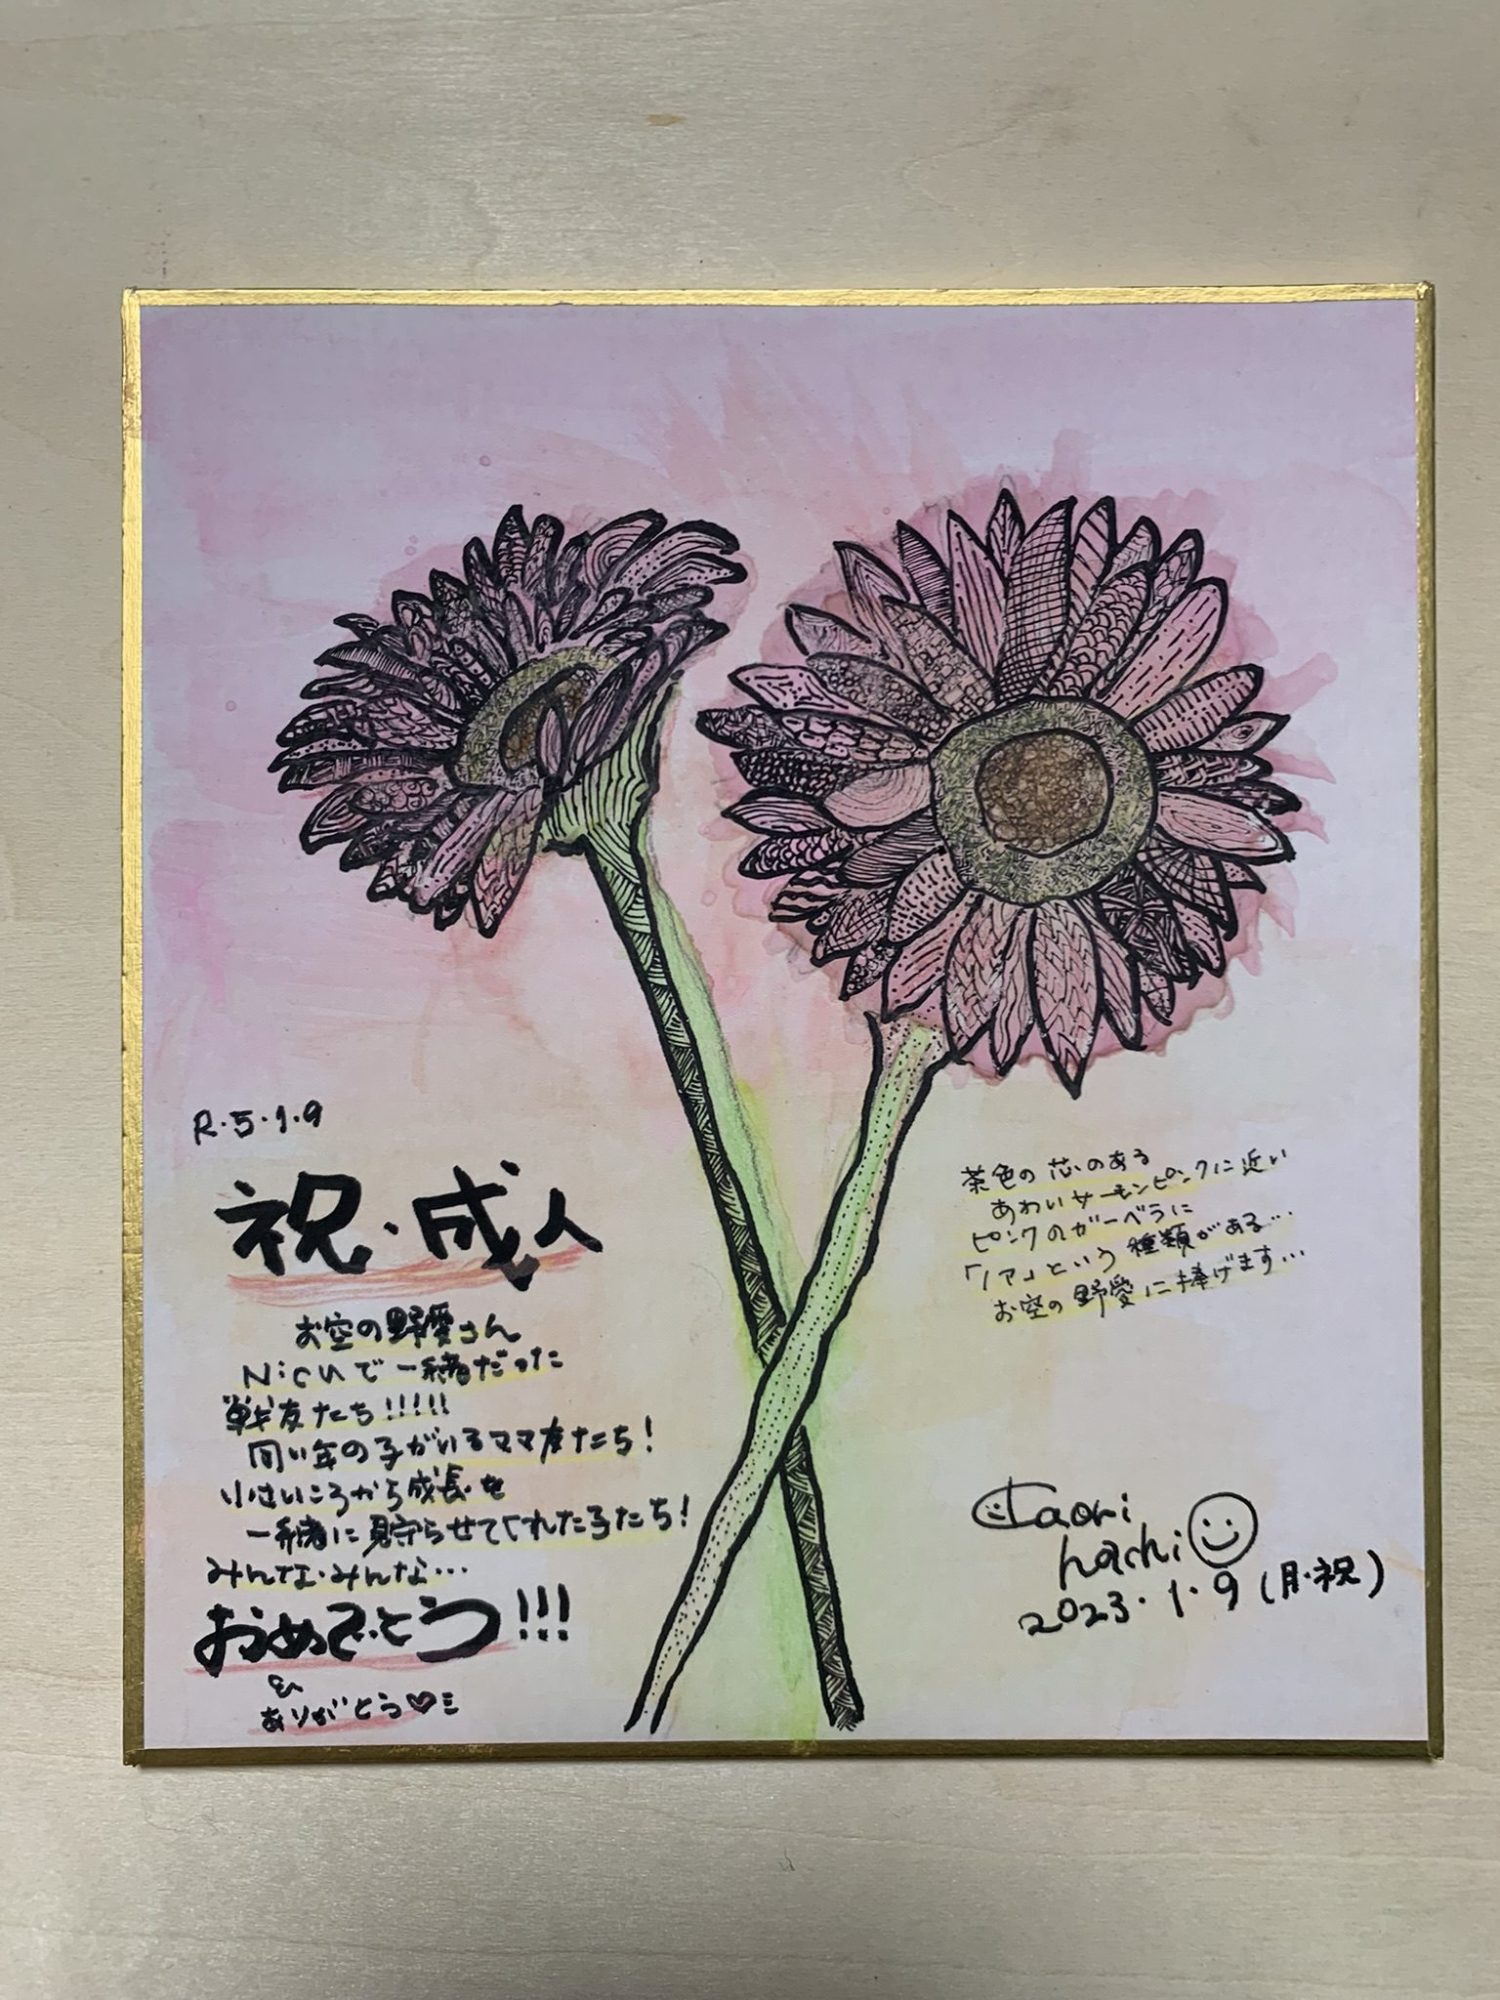 R.5.1.9
祝・成人
お空の野愛さん
Nicuで一緒だった
戦友たち!!!!!
同い年の子がいるママ友たち!
小さいころから成長を
一緒に見守らせてくれた子たち!
みんな・みんな…
おめでとう!!!
&
ありがとう♡ミ
茶色の芯のある
あわいサーモンピンクに近い
ピンクのガーベラに
「ノア」という種類がある…
お空の野愛に捧げます…
Kaori
hachi
2023.1.9(月・祝)